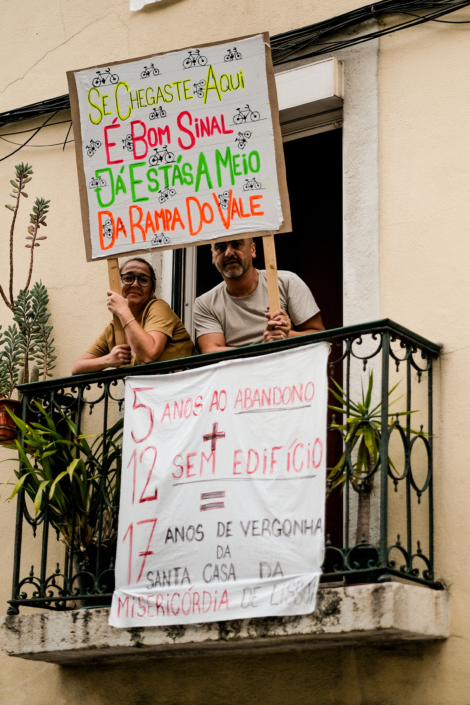 Se Chegaste Aqui
É Bom Sinal
Já Estás A Meio
Da Rampa Do Vale
5 ANOS AO ABANDONO
+
12 SEM EDIFÍCIO
=
17 ANOS DE VERGONHA
DA
SANTA CASA DA
MISERICÓRDIA DE LISBOA